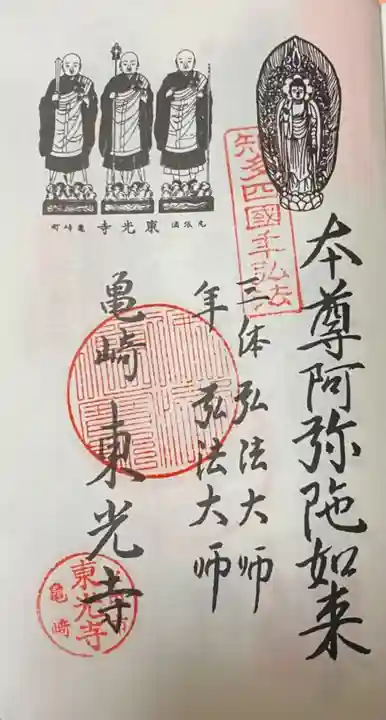 本尊阿弥陀如来
知多四國年弘法
三体弘法大师
年弘法大师
亀崎東光寺
町崎亀 寺光東 國張尾
東光寺
亀崎